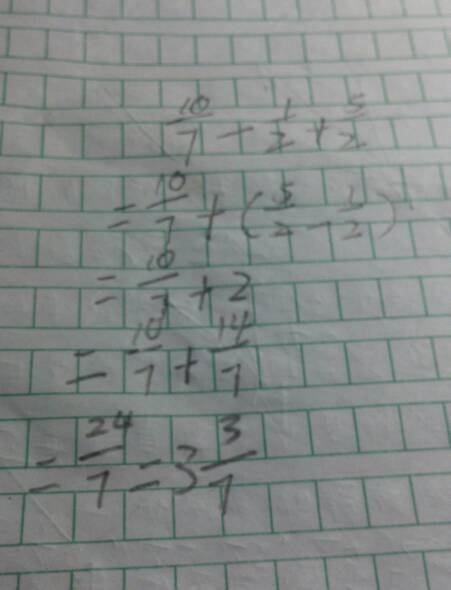 10/7 - 1/2 + 5/2
= 10/7 + (5/2 - 1/2)
= 10/7 + 2
= 10/7 + 14/7
= 24/7 = 3 3/7